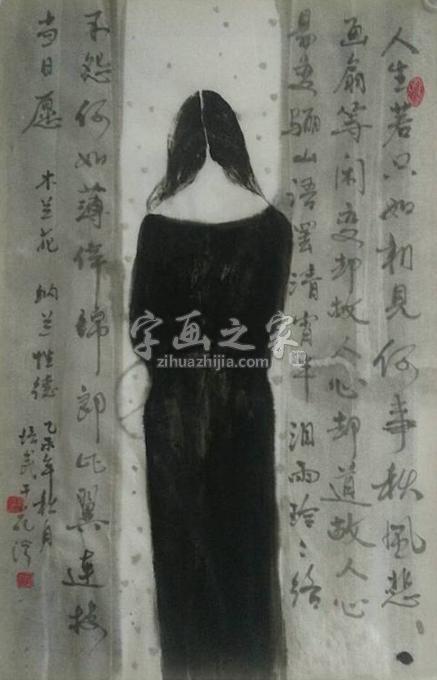 人生若只如初見何事秋風悲
画扇等闲变却故人心却道故人心
易变骊山语罢清宵半泪雨玲々终
不怨何如薄倖锦郎比翼連枝
当日愿
木兰花 纳兰性德
乙未年秋月
培武于
字画之家
zihuazhijia.com